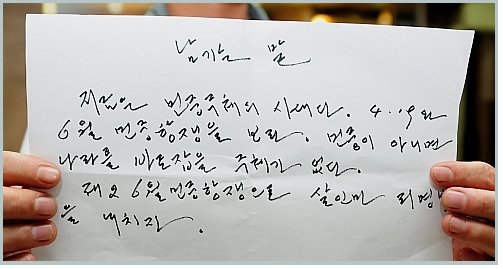 남기는 말
지금은 민중주체의 시대다. 4.19와
6월 민중항쟁을 보라. 민중이 아니면
나라를 바로잡을 주체가 없다.
제2 6월민중항쟁으로 살인마 리명박
을 내치자.